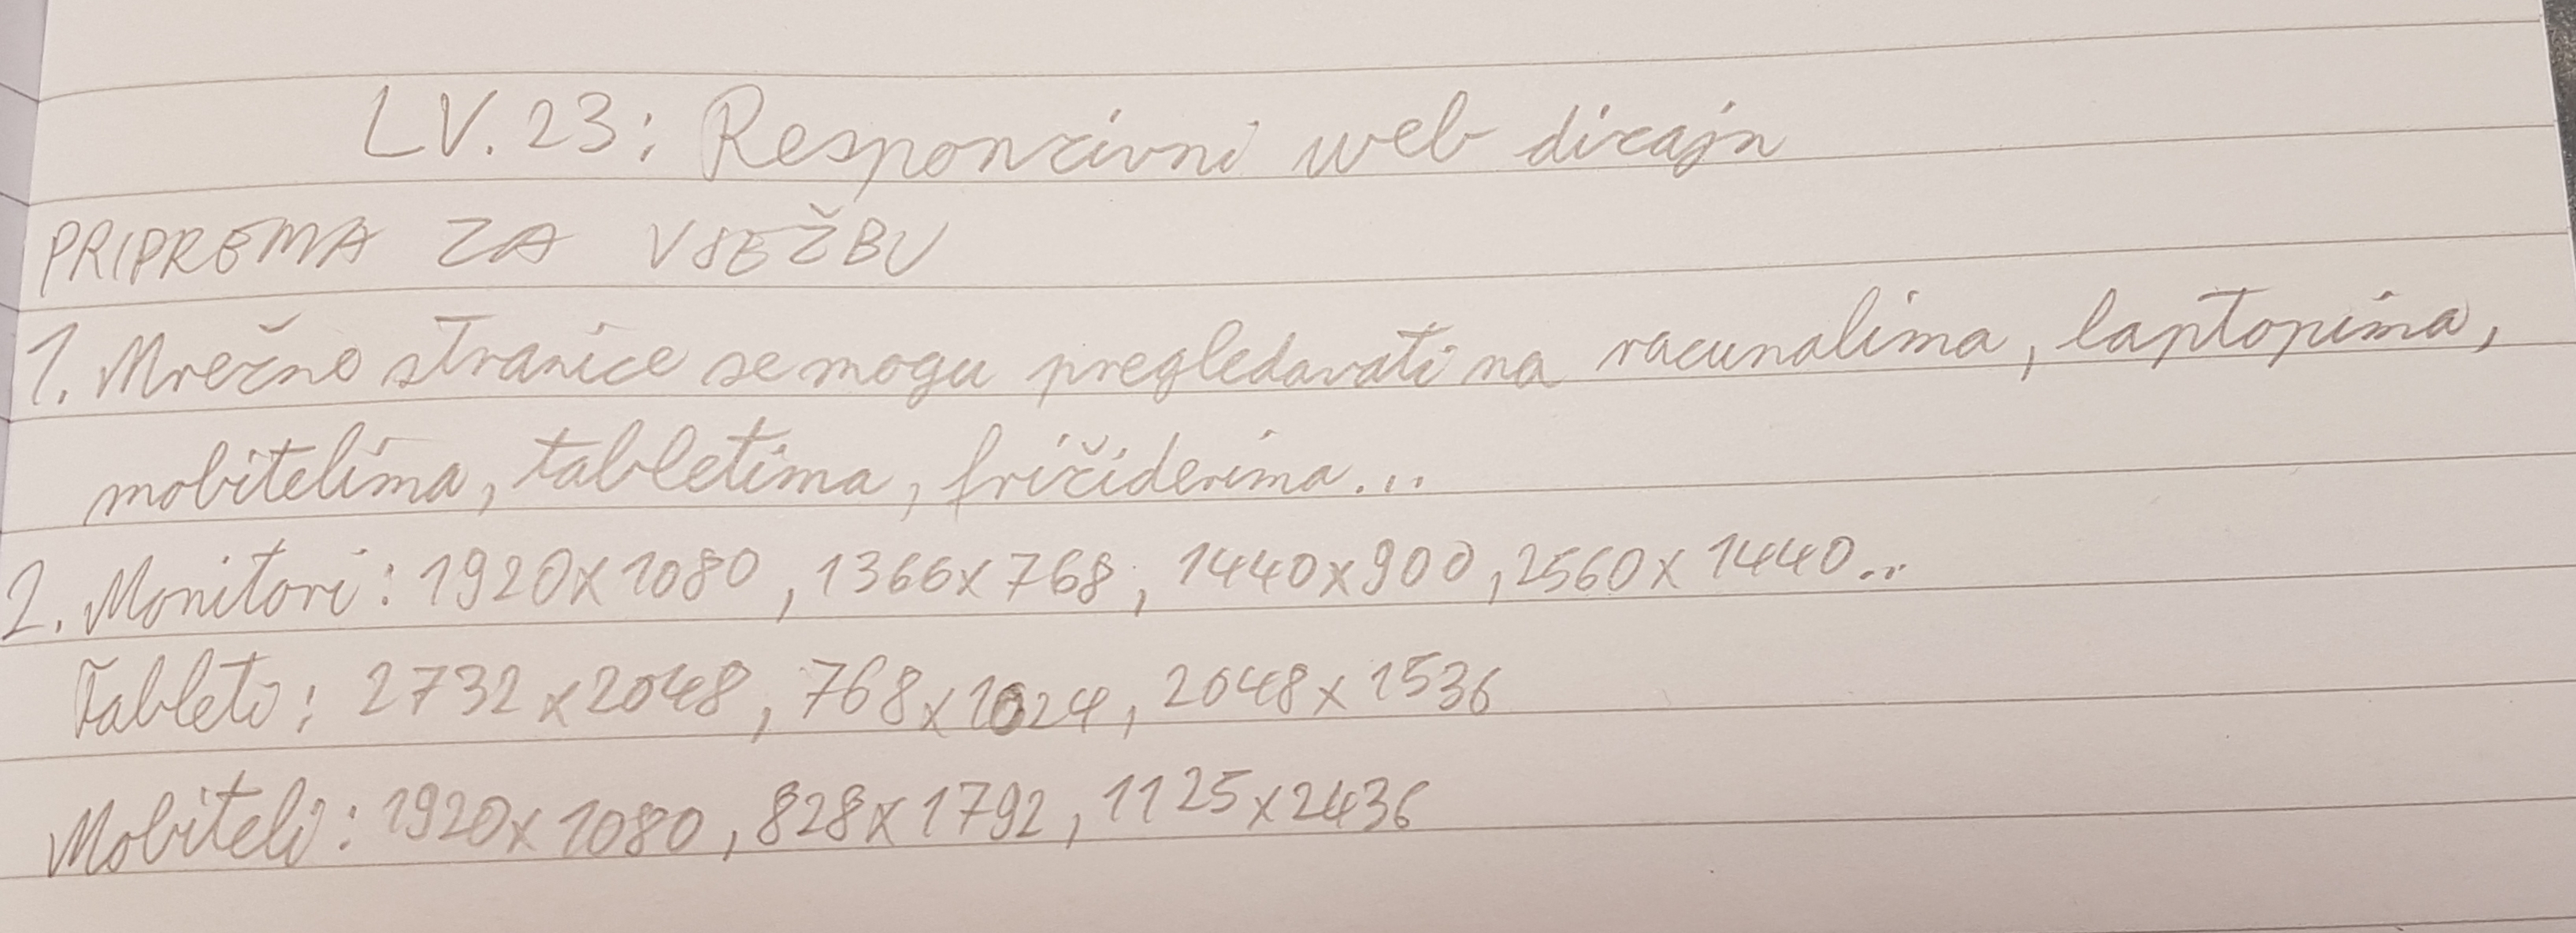 LV. 23: Responzivni web dizajn
PRIPREMA ZA VJEŽBU
1. Mrežne stranice se mogu pregledavati na racunalima, laptopima,
mobitelima, tabletima, frižiderima...
2. Monitori: 1920x1080, 1366x768, 1440x900, 2560x1440..
Tableti: 2732x2048, 768x1024, 2048x1536
Mobiteli: 1920x1080, 828x1792, 1125x2436